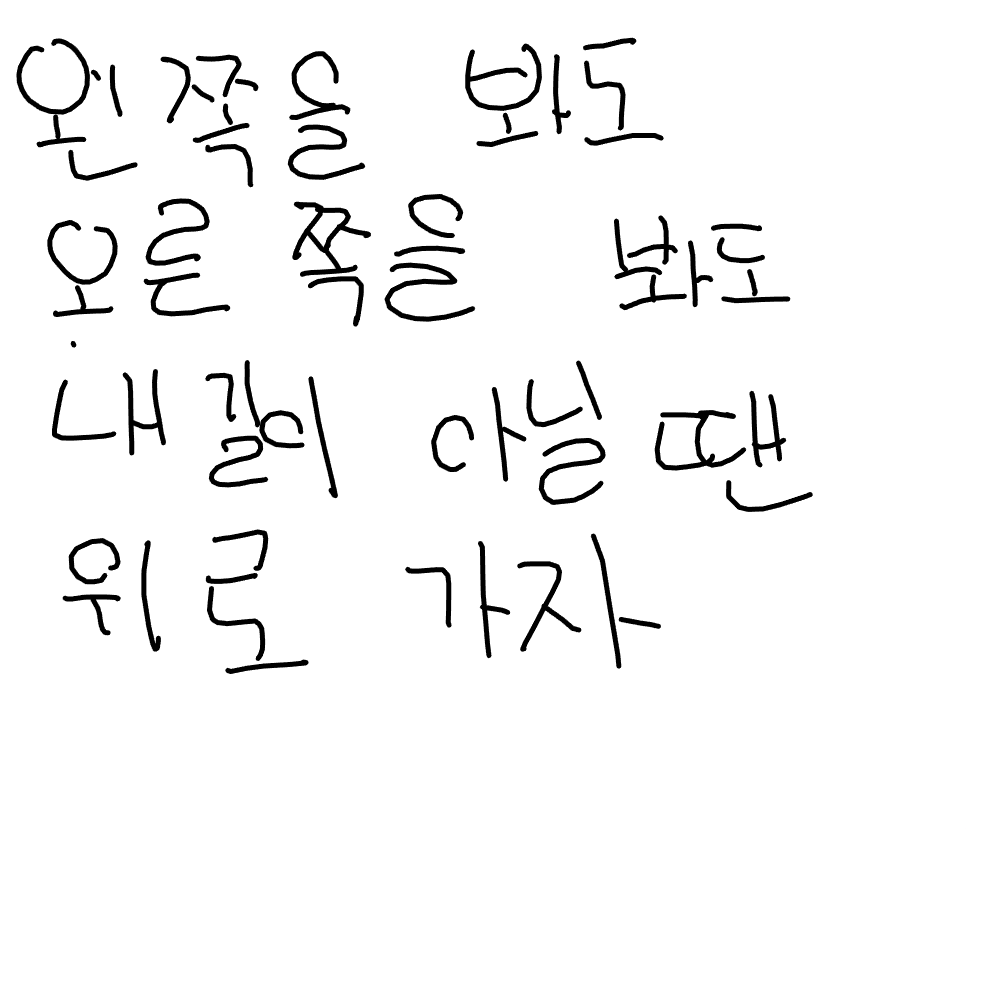 왼쪽을 봐도
오른쪽을 봐도
내길이 아닐 땐
위로 가자